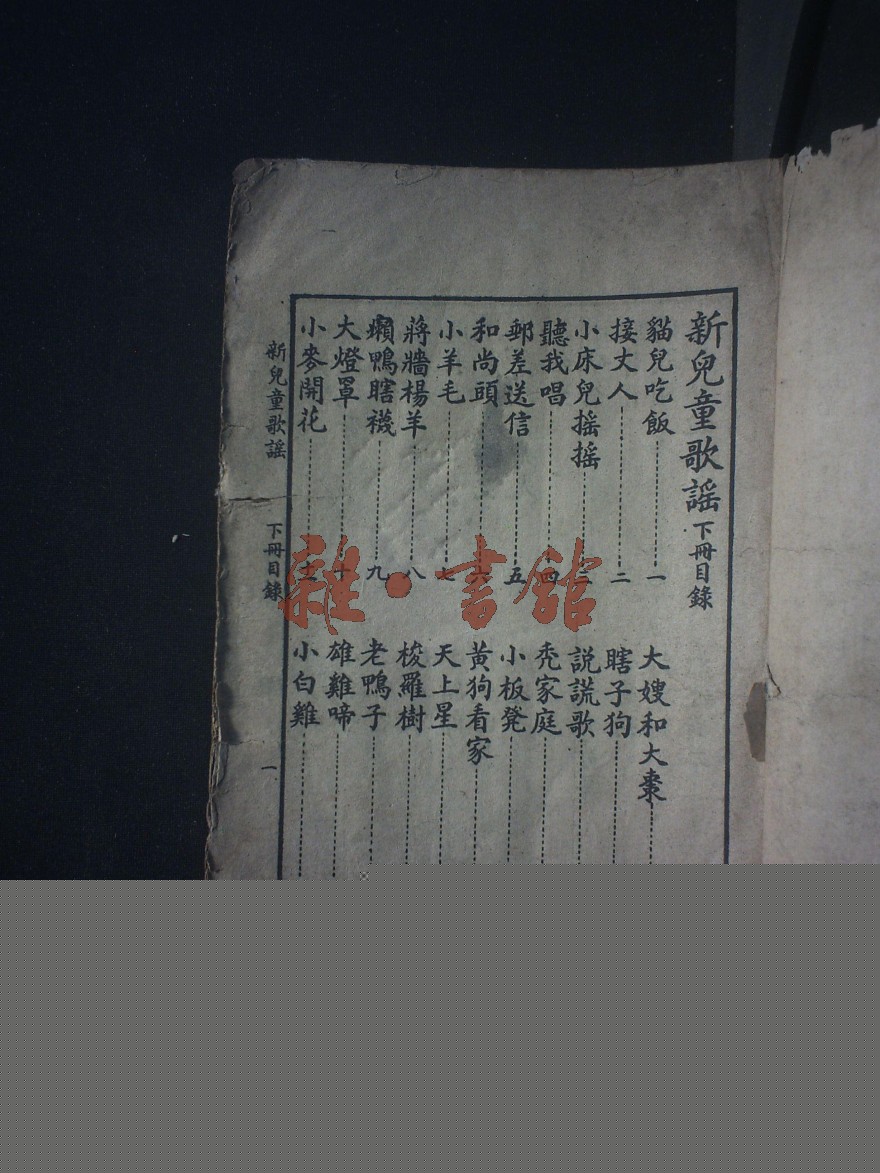 新兒童歌謠 下冊目錄
貓兒吃飯 一
接丈人 二
小床兒搖搖 三
聽我唱 四
郵差送信 五
和尚頭 六
小羊毛 七
蔣牆楊羊 八
癩鴨瞎襪 九
大燈罩 十
小麥開花
大嫂和大棗
瞎子狗
説謊歌
禿家庭
小板凳
黃狗看家
天上星
梭羅樹
老鴨子
雄雞啼
小白雞
新兒童歌謠 下冊目錄 一
雜·書館